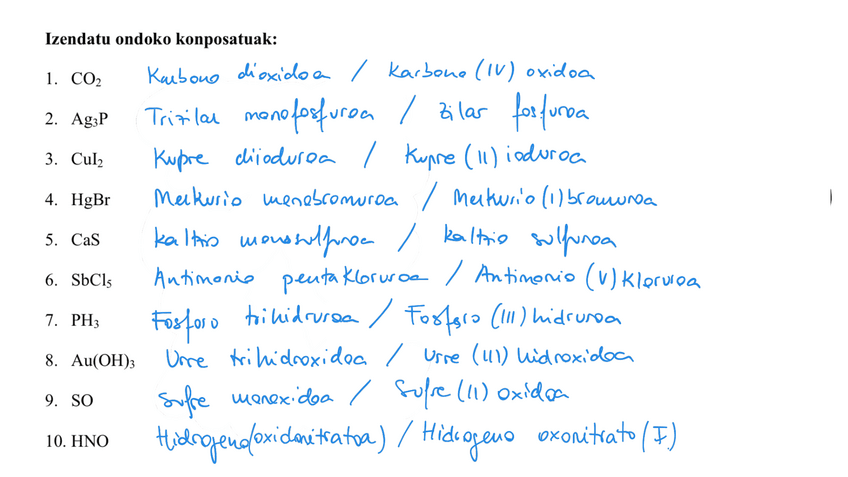 Izendatu ondoko konposatuak:
1. CO₂ Karbono dioxidoa / Karbono (IV) oxidoa
2. Ag₃P Trizilar monofosfuroa / Zilar fosfuroa
3. CuI₂ Kupre diioduroa / Kupre (II) ioduroa
4. HgBr Merkurio monobromuroa / Merkurio (I) bromuroa
5. CaS Kaltzio monosulfuroa / kaltzio sulfuroa
6. SbCl₅ Antimonio pentakloruroa / Antimonio (V) Kloruroa
7. PH₃ Fosforo trihidruroa / Fosforo (III) hidruroa
8. Au(OH)₃ Urre trihidroxidoa / Urre (III) hidroxidoa
9. SO Sufre monoxidoa / Sufre (II) oxidoa
10. HNO Hidrogeno(oxidonitratoa) / Hidrogeno oxonitrato (I)